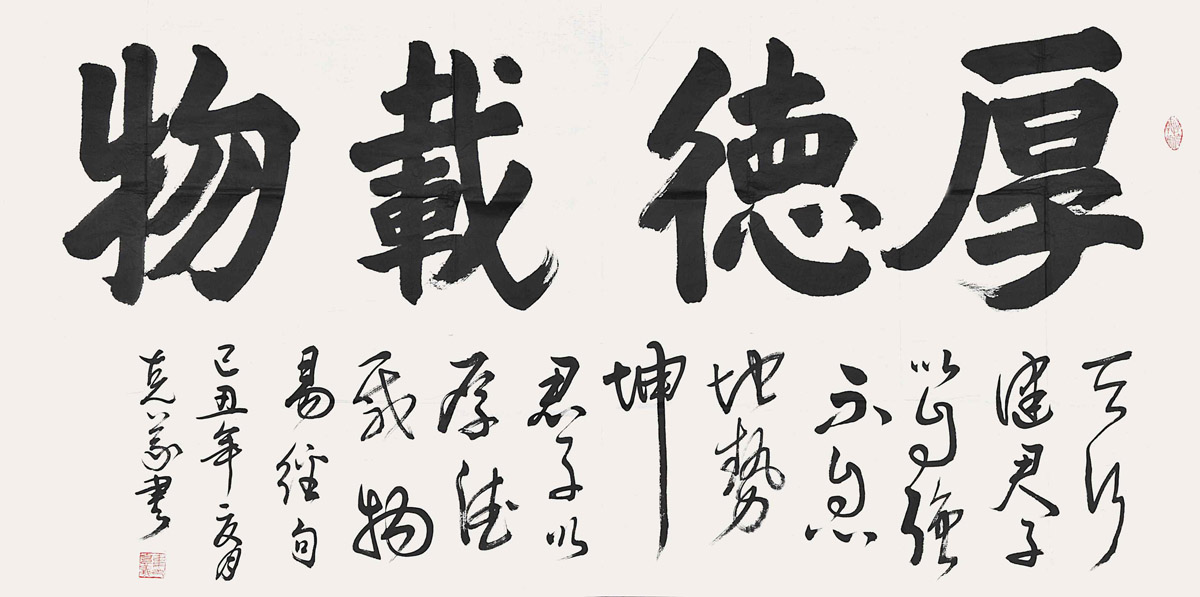 厚德載物
天行
健君子
以自強
不息
地勢
坤
君子以
厚德
載物
易經句
己丑年月
克書